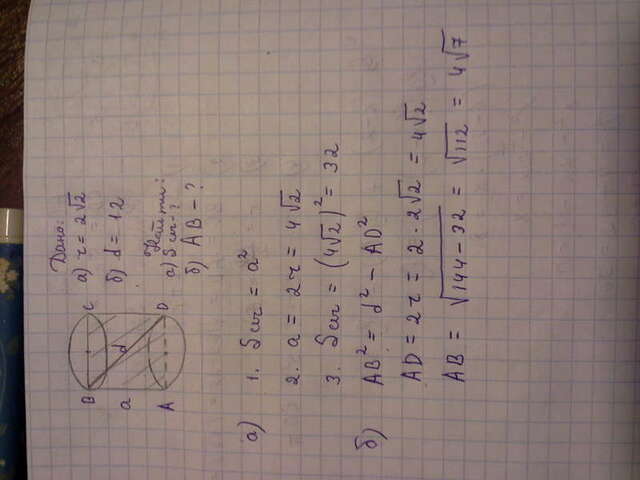 Дано:
а) r = 2√2
б) d = 12
Найти:
а) Sсеч - ?
б) AB - ?
B C
a d
A D
а) 1. Sсеч = a²
2. a = 2r = 4√2
3. Sсеч = (4√2)² = 32
б) AB² = d² - AD²
AD = 2r = 2·2√2 = 4√2
AB = √144-32 = √112 = 4√7